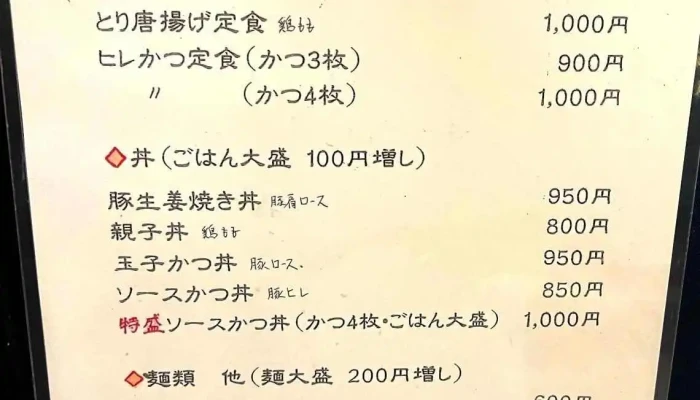 とり唐揚げ定食 鶏もも 1,000円
ヒレかつ定食(かつ3枚) 900円
〃 (かつ4枚) 1,000円
◆丼(ごはん大盛 100円増し)
豚生姜焼き丼 豚肩ロース 950円
親子丼 鶏もも 800円
玉子かつ丼 豚ロース. 950円
ソースかつ丼 豚ヒレ 850円
特盛ソースかつ丼(かつ4枚・ごはん大盛) 1,000円
◆麺類 他(麺大盛 200円増し)